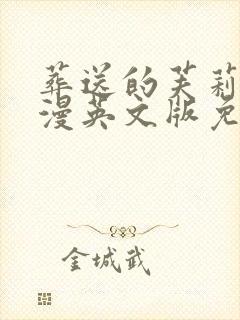 葬送的芙莉
漫英文版免
金城武